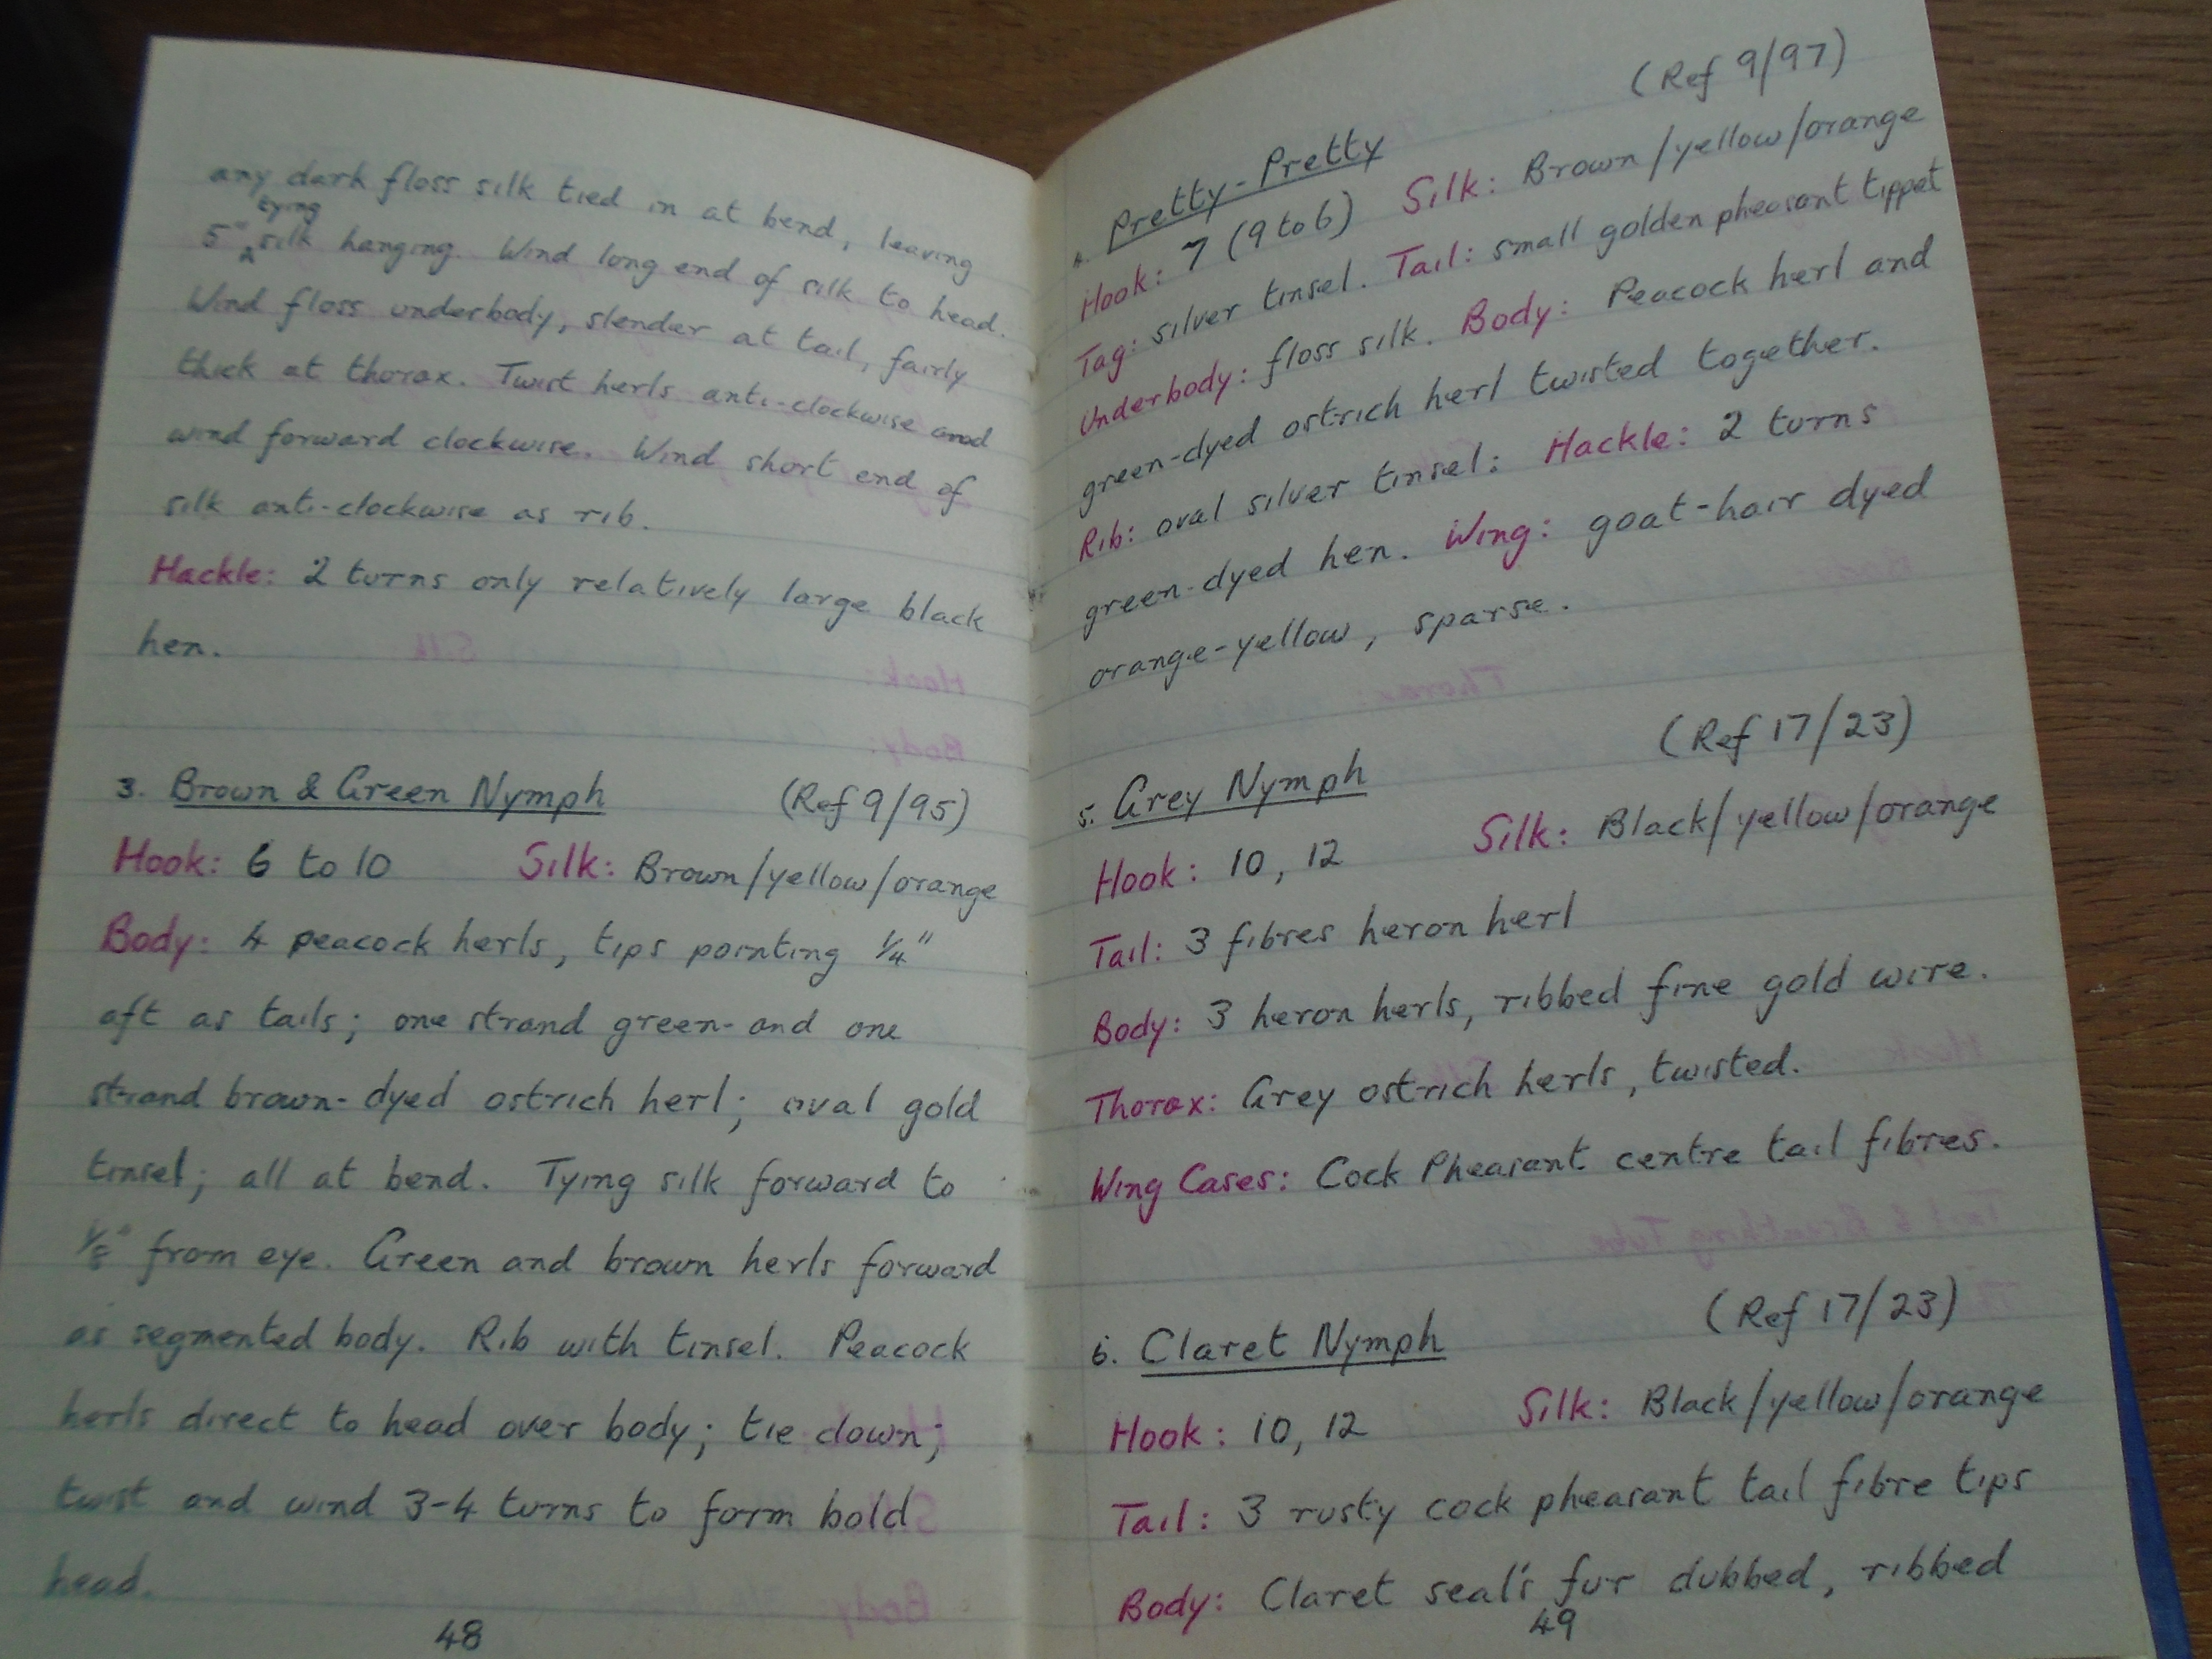 any dark floss silk tied in at bend, leaving
5" tying silk hanging. Wind long end of silk to head.
Wind floss underbody, slender at tail, fairly
thick at thorax. Twist herls anti-clockwise and
wind forward clockwise. Wind short end of
silk anti-clockwise as rib.
Hackle: 2 turns only relatively large black
hen.
3. Brown & Green Nymph (Ref 9/95)
Hook: 6 to 10 Silk: Brown/yellow/orange
Body: 4 peacock herls, tips pointing 1/4"
aft as tails; one strand green- and one
strand brown-dyed ostrich herl; oval gold
tinsel; all at bend. Tying silk forward to
1/8" from eye. Green and brown herls forward
as segmented body. Rib with tinsel. Peacock
herls direct to head over body; tie down;
twist and wind 3-4 turns to form bold
head.
48
(Ref 9/97)
4. Pretty-Pretty
Hook: 7 (9 to 6) Silk: Brown/yellow/orange
Tag: silver tinsel. Tail: small golden pheasant tippet
Underbody: floss silk. Body: Peacock herl and
green-dyed ostrich herl twisted together.
Rib: oval silver tinsel: Hackle: 2 turns
green-dyed hen. Wing: goat-hair dyed
orange-yellow, sparse.
(Ref 17/23)
5. Grey Nymph
Hook: 10, 12 Silk: Black/yellow/orange
Tail: 3 fibres heron herl
Body: 3 heron herls, ribbed fine gold wire.
Thorax: Grey ostrich herls, twisted.
Wing Cases: Cock Pheasant centre tail fibres.
(Ref 17/23)
6. Claret Nymph
Hook: 10, 12 Silk: Black/yellow/orange
Tail: 3 rusty cock pheasant tail fibre tips
Body: Claret seal's fur dubbed, ribbed
49